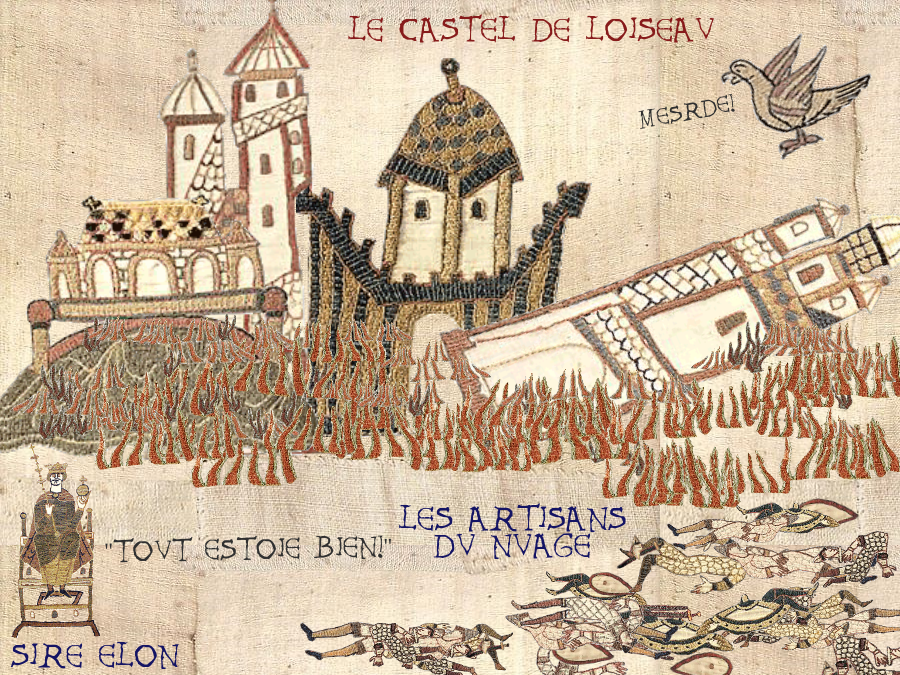 LE CASTEL DE LOISEAV
MESRDE!
LES ARTISANS
DV NVAGE
"TOVT ESTOIE BIEN!"
SIRE ELON